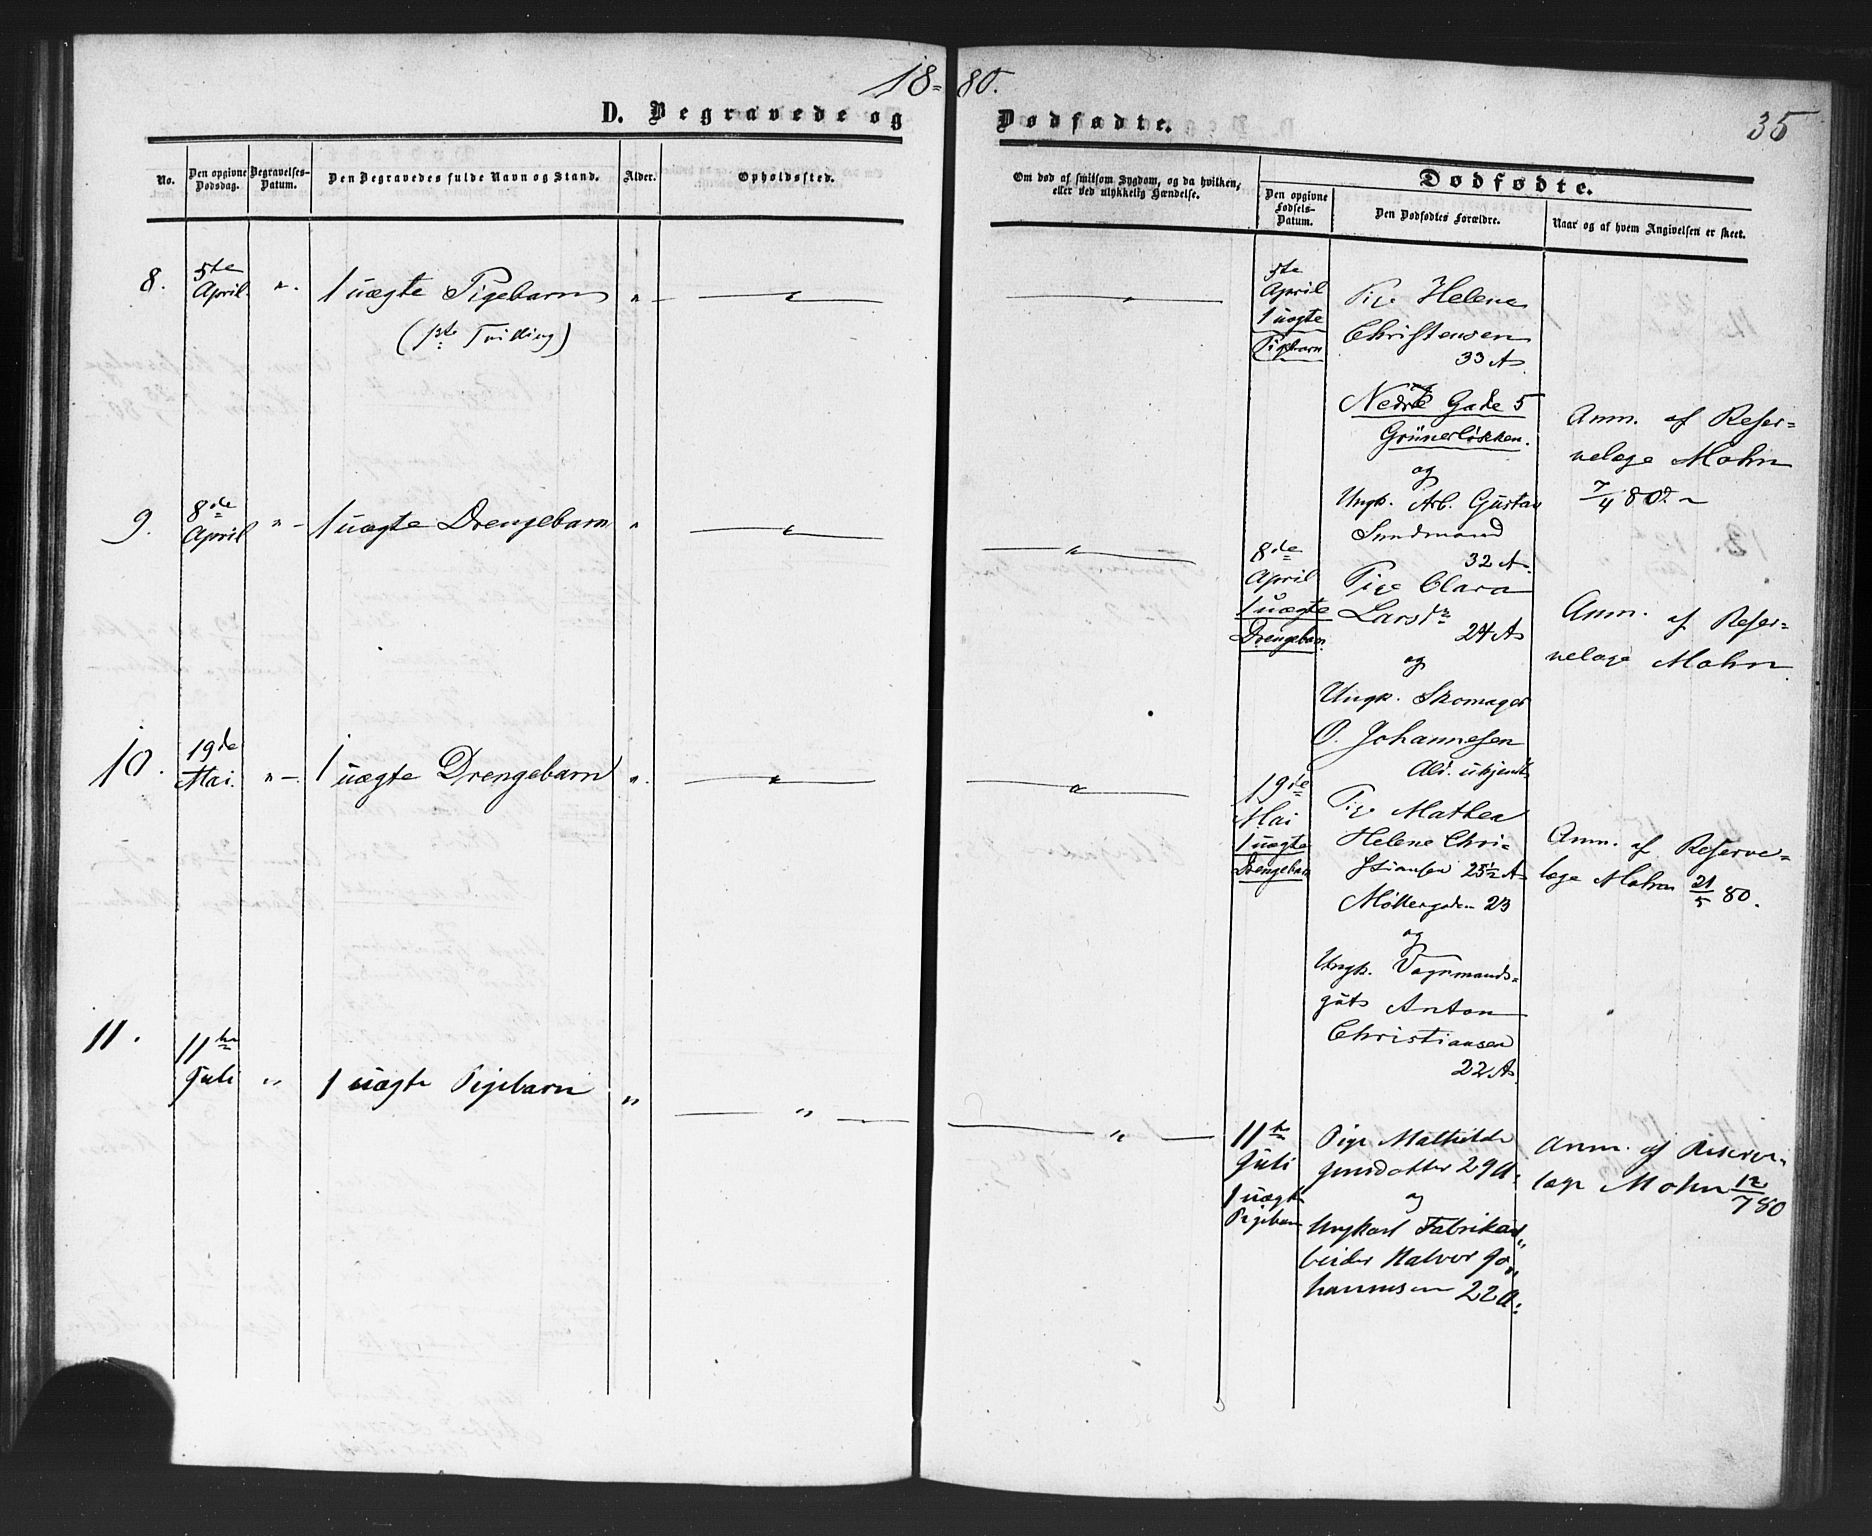 18-80.
D. Begravede og Dødfødte.
35
No.
Den opgivne Dødsdag.
Begravelses-Datum.
Den Begravedes fulde Navn og Stand.
Alder.
Opholdssted.
Om død af smitsom Sygdom, og da hvilken, eller ved ulykkelig Hændelse.
Dødfødte.
Den opgivne Fødsels-Datum.
Den Dødfødtes Forældre.
Naar og af hvem Angivelsen er skeet.
8.
5te
April
"
1 uægte Pigebarn
(1ste Tvilling)
"
"
"
5te
April
1 uægte
Pigebarn
Pige Helene
Christensen
33 A
Nedre Gade 5
Grünerløkken.
og
Ungk. Arb. Gustav
Sundmand
32 A.
Anm. af Reser-
velæge Mohn
7/4 80.
9.
8de
April
"
1 uægte Drengebarn
"
"
"
8de
April
1 uægte
Drengebarn
Pige Clara
Larsdr
24 A
og
Ungk. Skomager
O. Johannesen
Ald. ukjendt
Anm. af Reser-
velæge Mohn.
10.
19de
Mai.
"
1 uægte Drengebarn
"
"
"
19de
Mai
1 uægte
Drengebarn
Pige Mathea
Helene Chri-
stiansen 25 1/2 A
Møllergaden 23
og
Ungk. Vognmands-
gut Anton
Christiansen
22 A.
Anm. af Reserve-
læge Mohn 21/5 80.
11.
11te
Juli
"
1 uægte Pigebarn
"
"
"
11te
Juli
1 uægte
Pigebarn
Pige Mathilde
Jensdatter 29 A.
og
Ungkarl Fabrikar-
beider Halvor Jo-
hannesen 22 A.
Anm. af Reserve-
læge Mohn 12/7 80